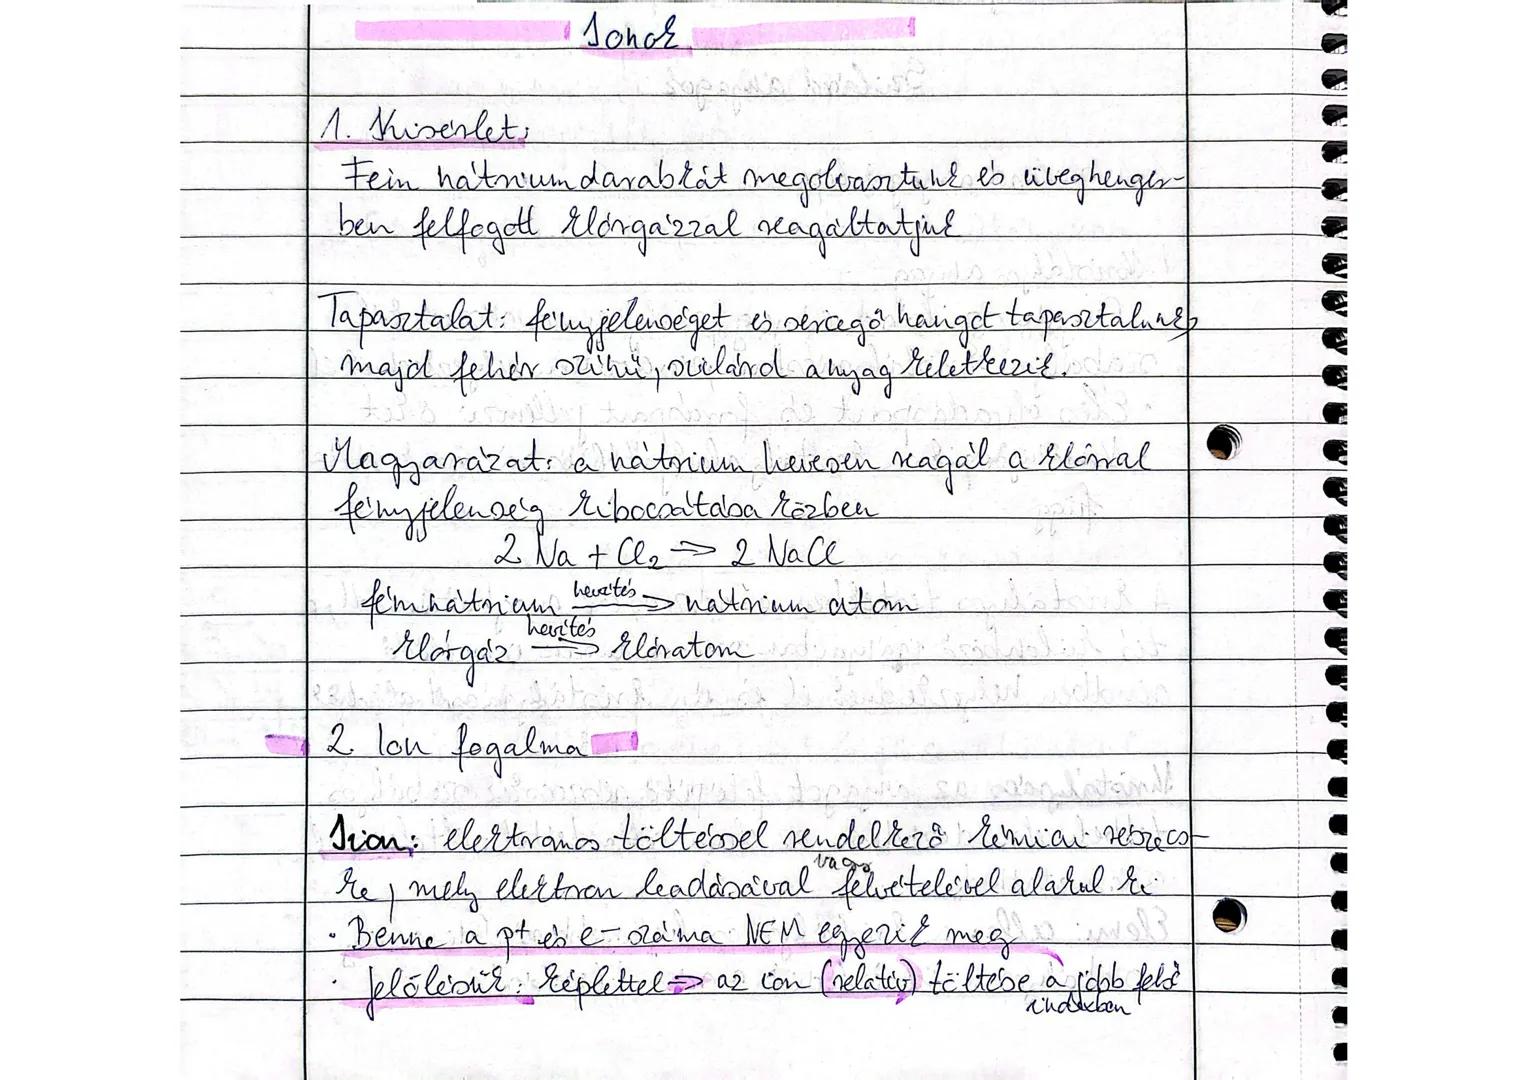 Ionok
1. Kísérlet:
Fém nátriumdarabkát megolvasztunk és üveghenger-
ben felfogott klórgázzal reagáltatjuk
Tapasztalat: fényjelenséget és sercegő hangot tapasztalunk,
majd fehér színű, szilárd anyag keletkezik.
Magyarázat: a nátrium hevesen reagál a klórral
fényjelenség kibocsátása közben
2 Na + Cl₂ → 2 NaCl
fémnátrium hevítés → nátrium atom
klórgáz hevítés → klóratom
2. Ion fogalma
Ion: elektromos töltéssel rendelkező kémiai részecs-
ke, mely elektron leadásával vagy felvételével alakul ki.
• Benne a p+ és e- száma NEM egyezik meg
• Jelölésük: képlettel → az ion (relatív) töltése a jobb felső
indexben